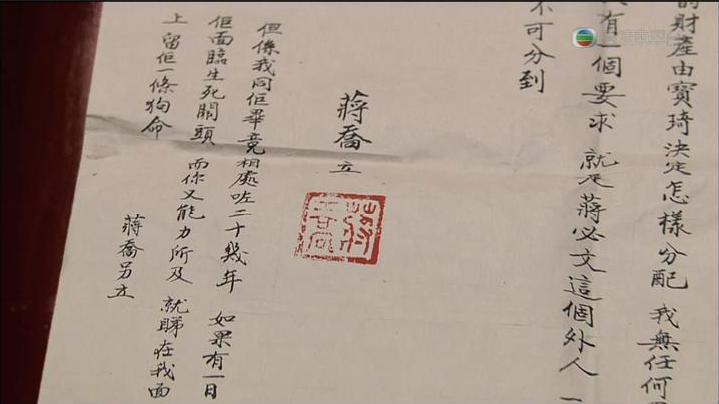 財產由寶琦決定怎樣分配 我無任何
有一個要求 就是蔣必文這個外人 一
不可分到
蔣喬 立
蔣喬
但係我同佢畢竟相處咗二十幾年 如果有一日
佢面臨生死關頭 而你又能力所及 就睇在我面
上 留佢一條狗命
蔣喬另立